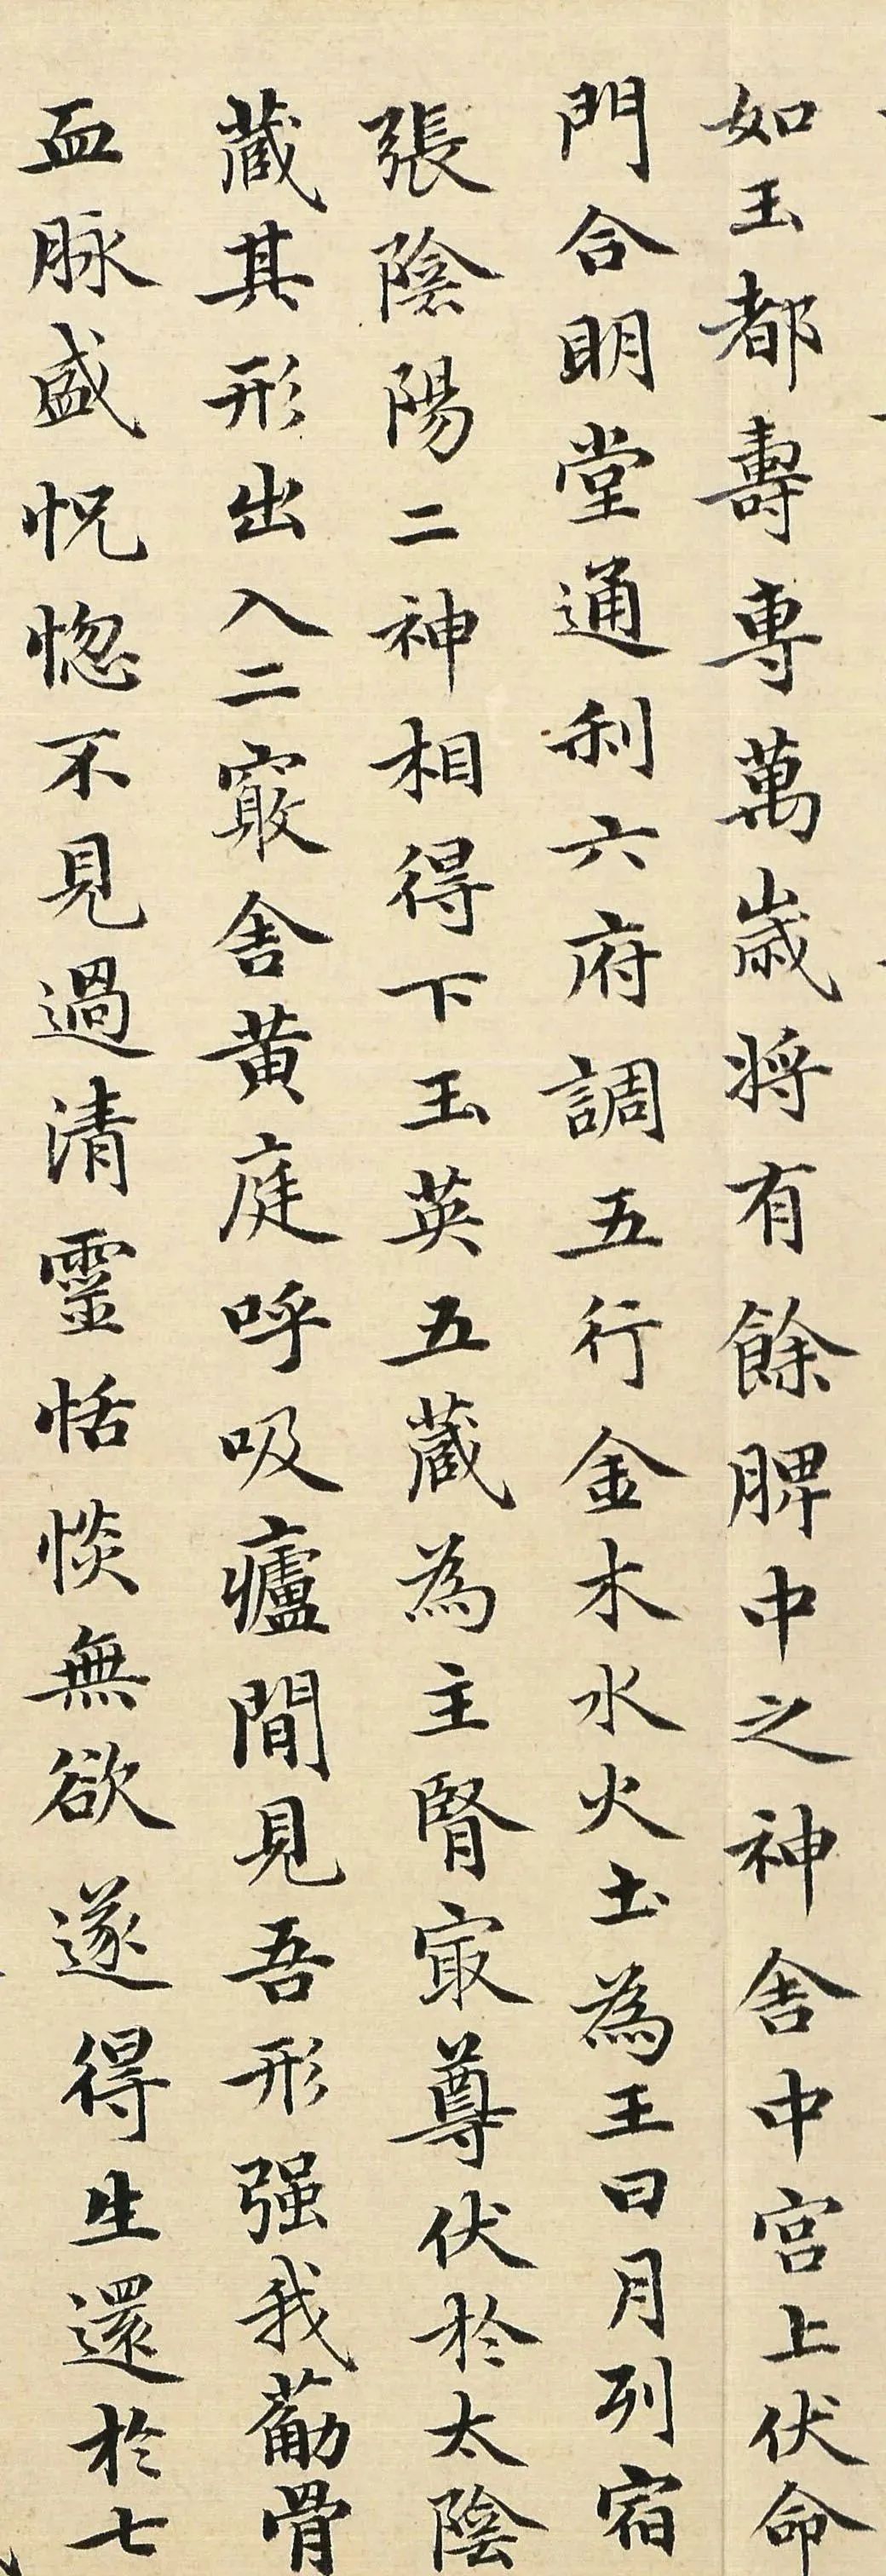 如玉都壽專萬歲將有餘脾中之神舍中宮上伏命
門合明堂通利六府調五行金木水火土為王日月列宿
張陰陽二神相得下玉英五藏為主腎寂尊伏於太陰
藏其形出入二竅舍黃庭呼吸廬間見吾形强我筋骨
血脉盛怳惚不見過清靈恬惔無欲遂得生還於七